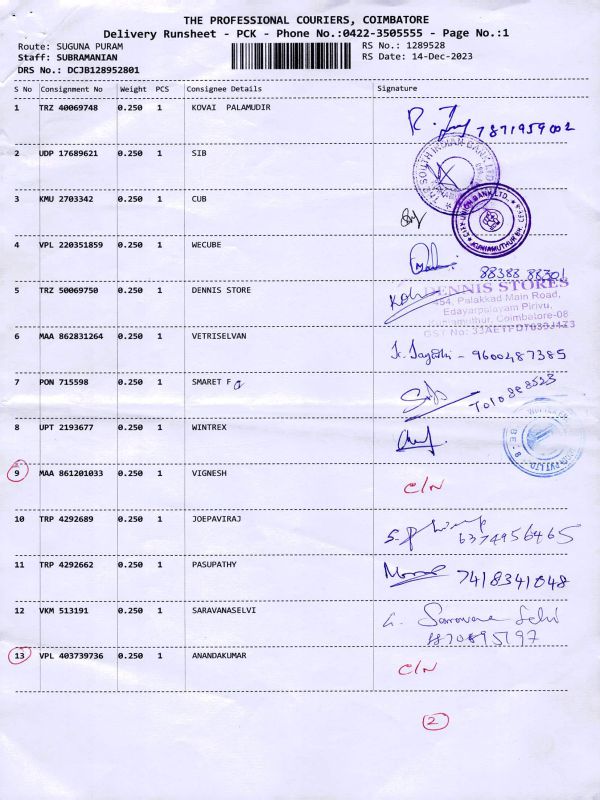 THE PROFESSIONAL COURIERS, COIMBATORE
Delivery Runsheet - PCK - Phone No.:0422-3505555 - Page No.:1
Route: SUGUNA PURAM RS No.: 1289528
Staff: SUBRAMANIAN RS Date: 14-Dec-2023
DRS No.: DCJB128952801
S No Consignment No Weight PCS Consignee Details Signature
1 TRZ 40069748 0.250 1 KOVAI PALAMUDIR
7871959002
2 UDP 17689621 0.250 1 SIB
THE SOUTH INDIAN BANK LTD
3 KMU 2703342 0.250 1 CUB
CITY UNION BANK LTD.
KUNIAMUTHUR
4 VPL 220351859 0.250 1 WECUBE
88388 88301
5 TRZ 50069750 0.250 1 DENNIS STORE
DENNIS STORES
454, Palakkad Main Road,
Edayarpalayam Pirivu,
Kuniamuthur, Coimbatore-08
GST No:
6 MAA 862831264 0.250 1 VETRISELVAN
- 9600487385
7 PON 715598 0.250 1 SMARET F
8 UPT 2193677 0.250 1 WINTREX
9 MAA 861201033 0.250 1 VIGNESH C/N
10 TRP 4292689 0.250 1 JOEPAVIRAJ
6374956465
11 TRP 4292662 0.250 1 PASUPATHY
7418341048
12 VKM 513191 0.250 1 SARAVANASELVI
8870895197
13 VPL 403739736 0.250 1 ANANDAKUMAR C/N
2